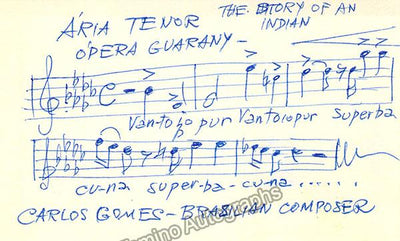 ÁRIA TENOR
THE STORY OF AN
INDIAN
ÓPERA GUARANY-
Van-to io pur Vantoiopur Superba
cu-na super-ba-cu-na......
CARLOS GOMES-BRASILIAN COMPOSER
Tamino Autographs